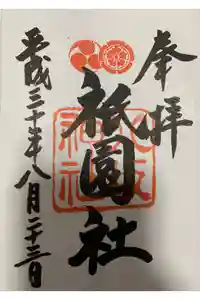 奉拝
祇園社
平成三十年八月二十三日